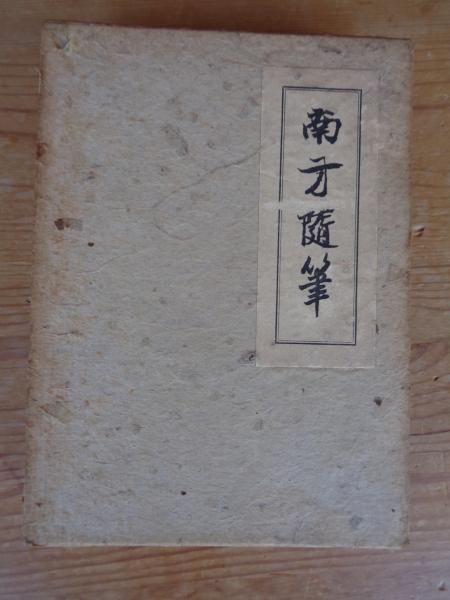 南方随筆